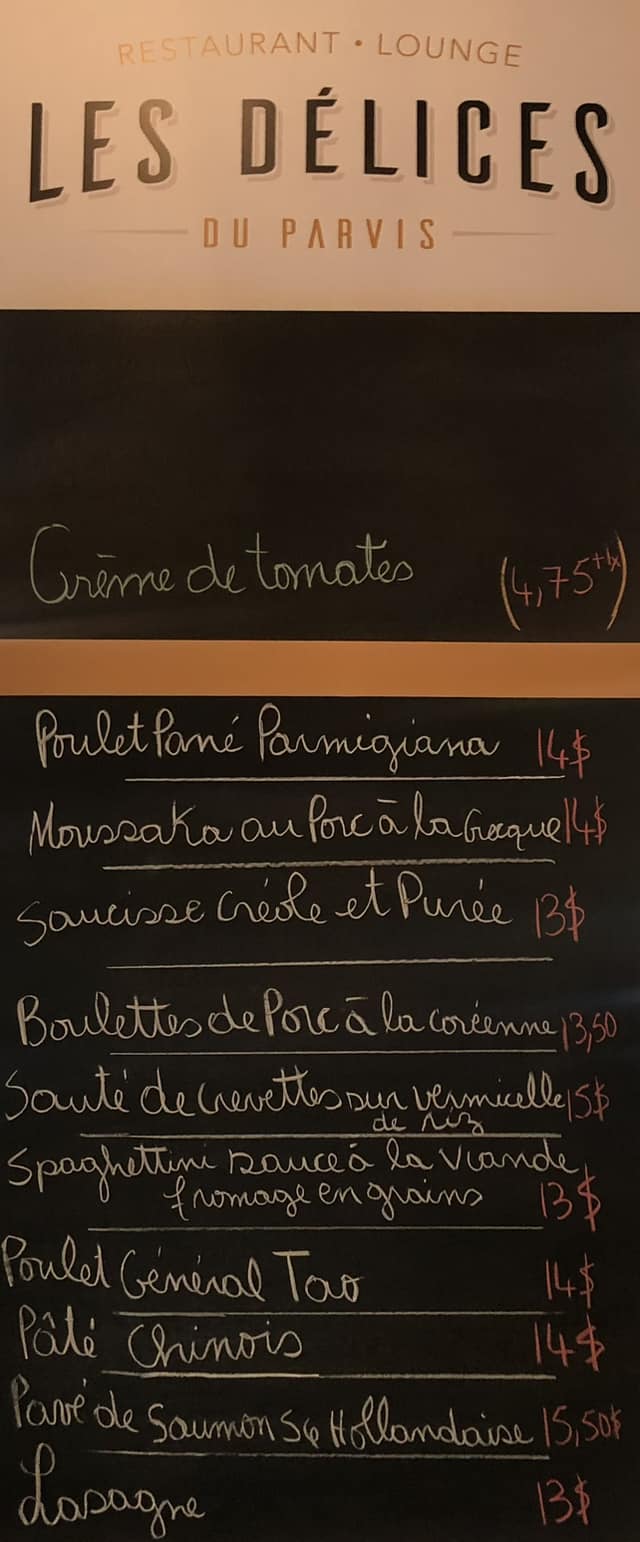 RESTAURANT • LOUNGE
LES DÉLICES
DU PARVIS
Crème de tomates (4,75+tx)
Poulet Pané Parmigiana 14$
Moussaka au Porc à la Grecque 14$
Saucisse Créole et Purée 13$
Boulettes de Porc à la coréenne 13,50
Sauté de Crevettes sur vermicelle 15$
de riz
Spaghettini sauce à la viande
fromage en grains 13$
Poulet Général Tao 14$
Pâté Chinois 14$
Pavé de Saumon Sc Hollandaise 15,50$
Lasagne 13$